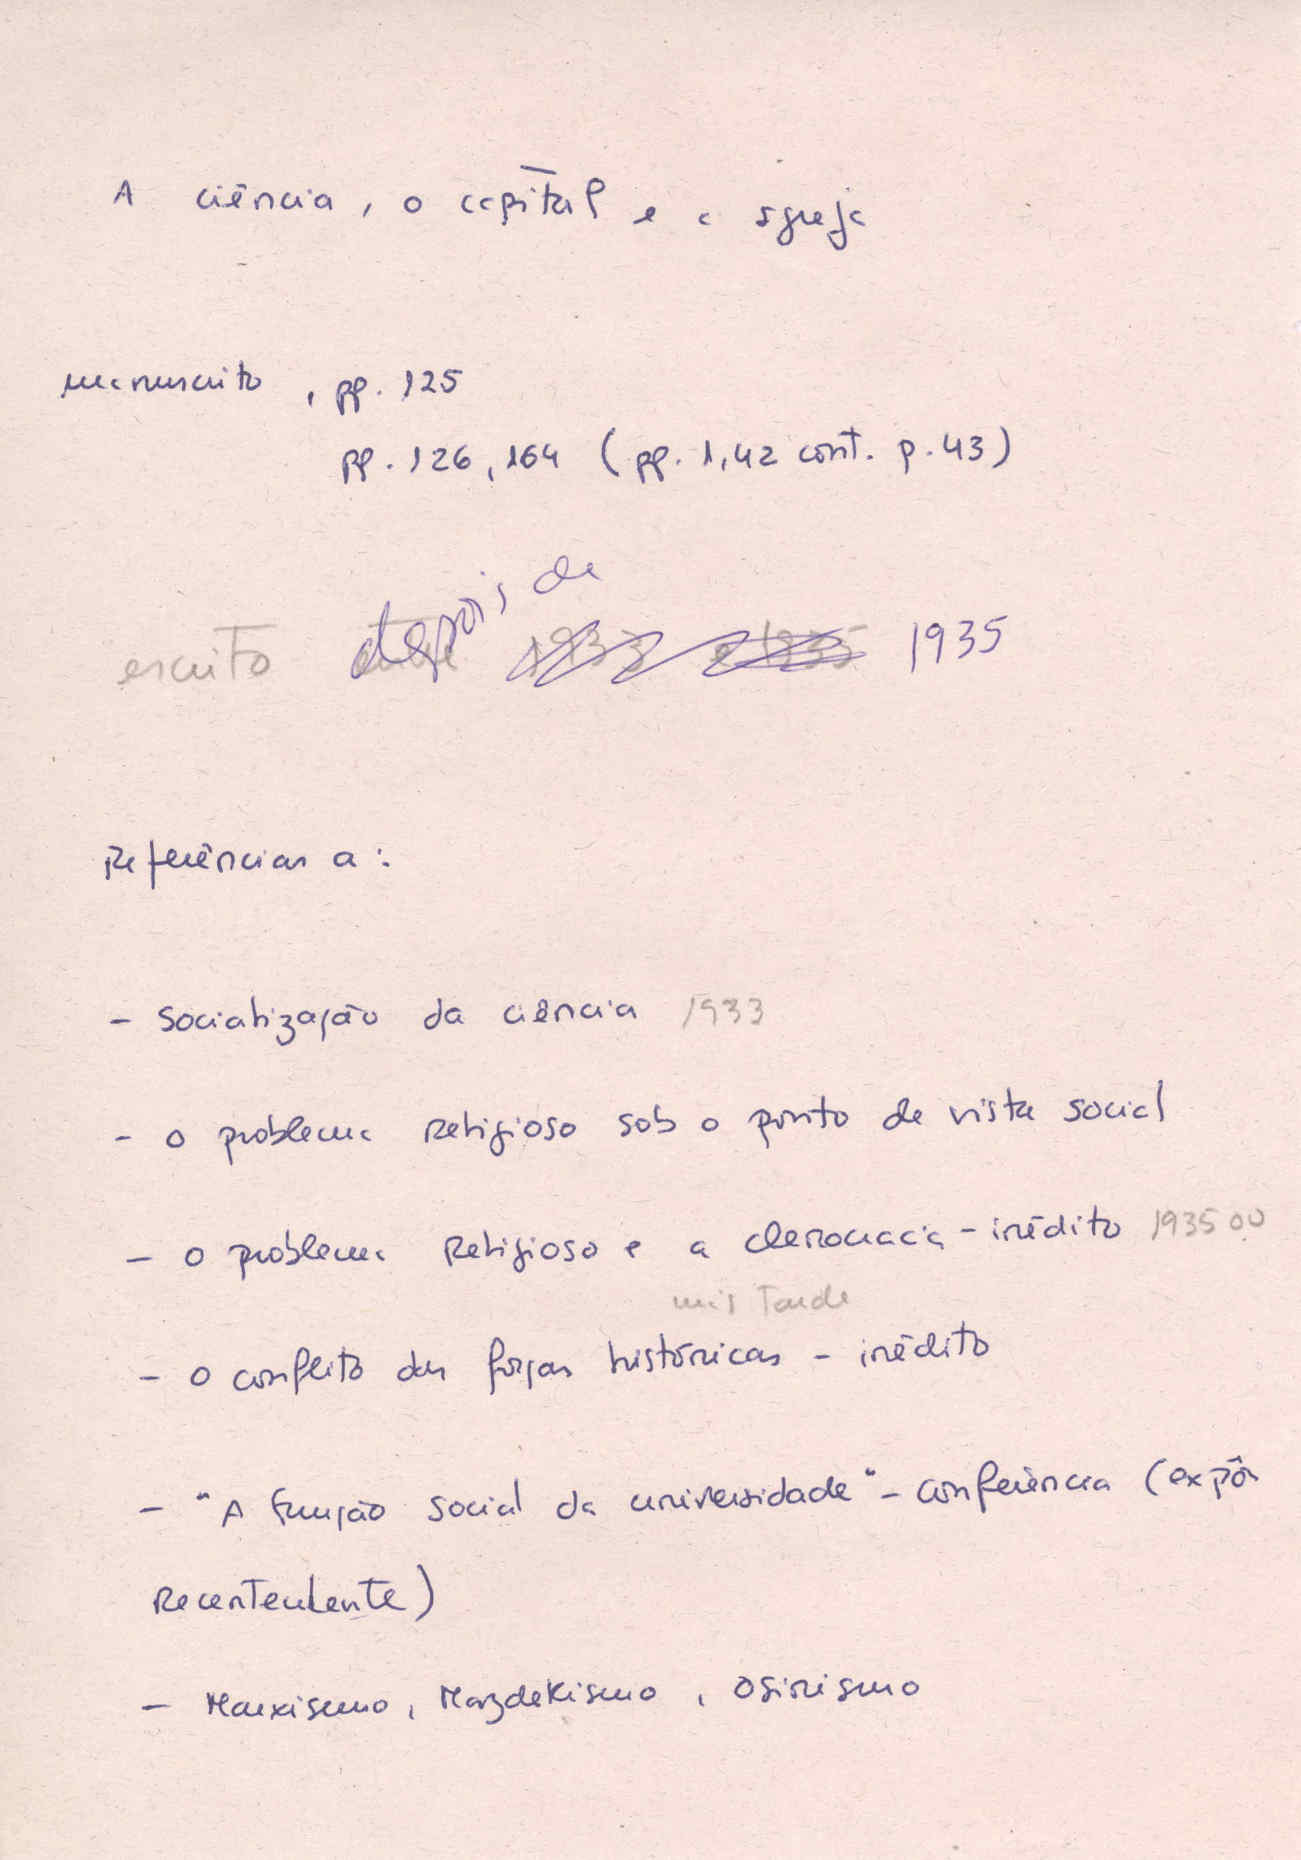 A ciência, o capital e a Igreja
manuscrito, pp. 125
pp. 126, 164 (pp. 1, 42 cont. p. 43)
escrito depois de 1935
Referências a:
- Socialização da ciência 1933
- O problema Religioso sob o ponto de vista social
- O problema Religioso e a clerocracia - inédito 1935 ou
mais tarde
- O conflito das forças históricas - inédito
- "A função social da universidade" - conferência (expôs
Recentemente)
- Marxismo, Mazdekismo, Osirismo